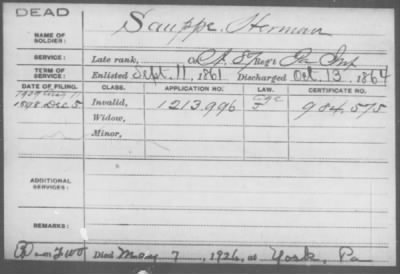 DEAD
NAME OF SOLDIER: Sauppe, Herman
SERVICE: Late rank, Co. Reg't Pa Inf
TERM OF SERVICE: Enlisted Sept. 11, 1861 Discharged Oct. 13, 1864
DATE OF FILING. CLASS. APPLICATION NO. CERTIFICATE NO.
1898 Dec 5 Invalid, 1213.996 984.575
Widow,
Minor,
ADDITIONAL SERVICES:
REMARKS:
Died May 7, 1926, at York, Pa